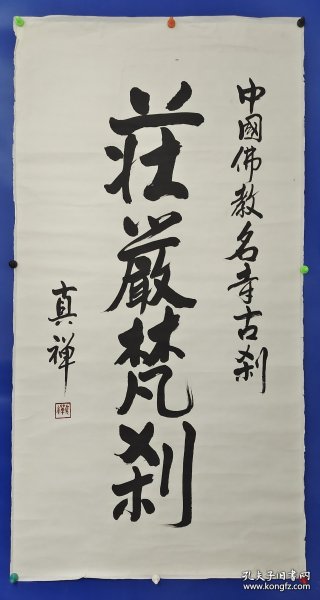 中國佛教名寺古刹
莊嚴梵刹
真禅
孔夫子旧书网
www.kongfz.com